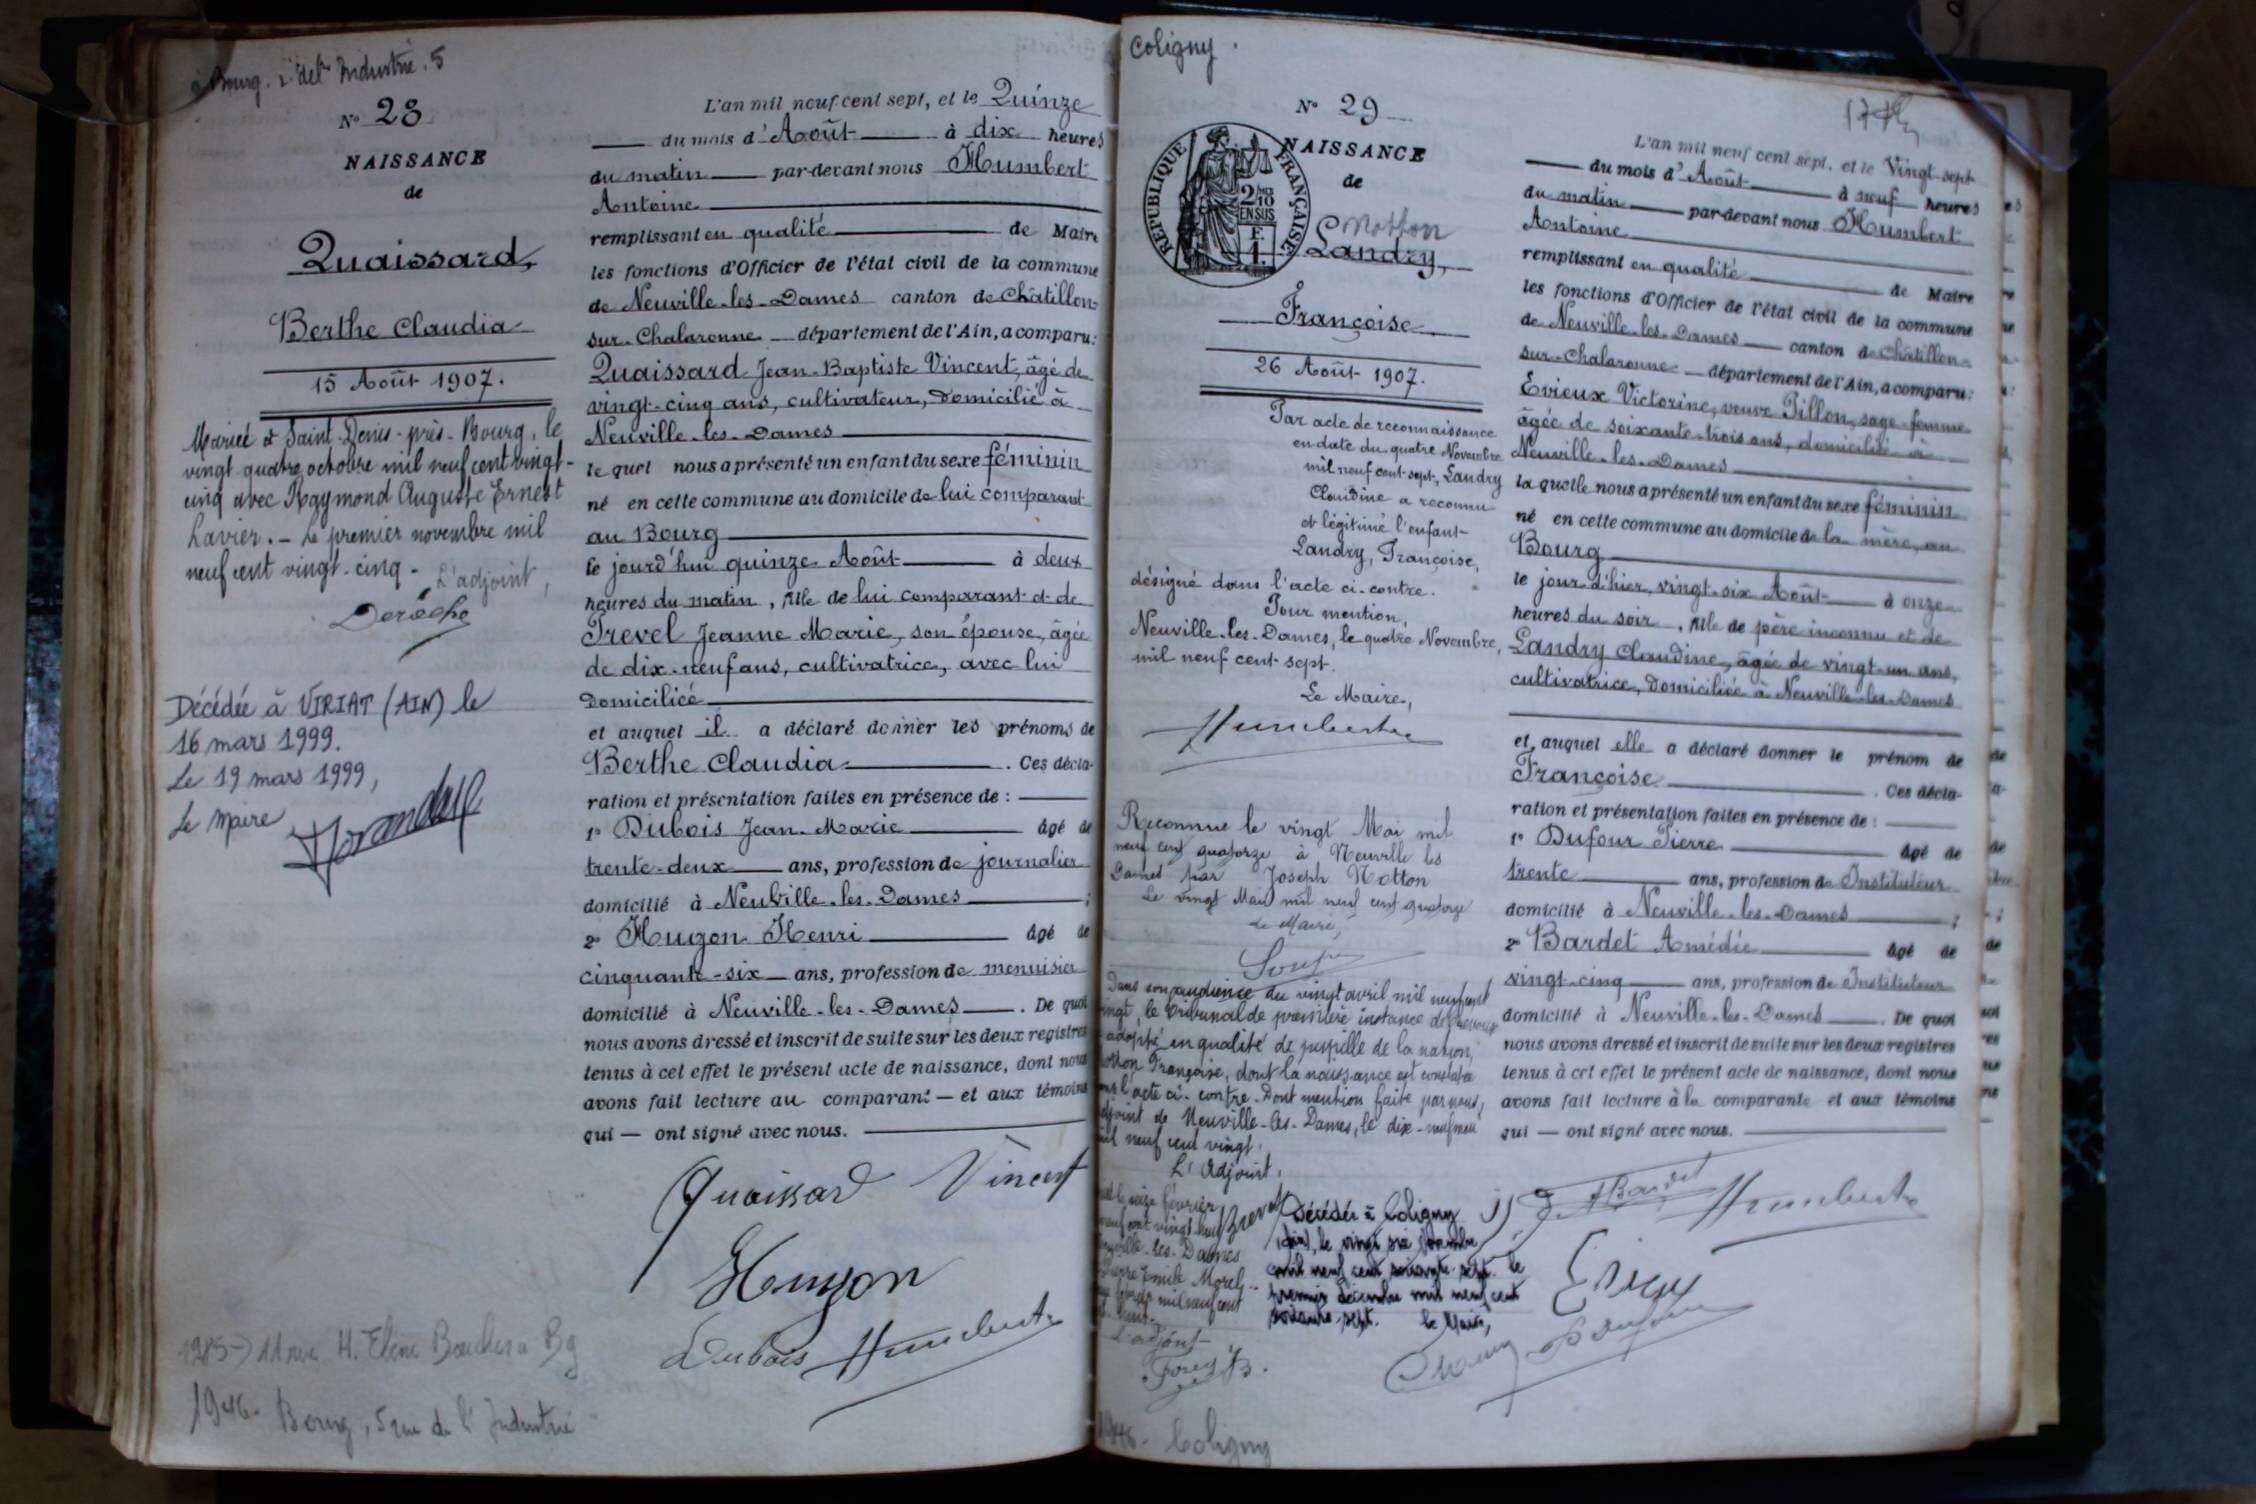 à Bourg. r. de l'Industrie. 5
N° 28
NAISSANCE
de
Quaissard,
Berthe Claudia
15 Août 1907.
Mariée à Saint-Denis-près-Bourg, le
vingt quatre octobre mil neuf cent vingt-
cinq avec Raymond Auguste Ernest
Lavier. - Le premier novembre mil
neuf cent vingt-cinq - L'adjoint,
Deroche
Décédée à VIRIAT (AIN) le
16 mars 1999.
Le 19 mars 1999,
Le Maire
1985 → 11 rue H. Elene Boucher a Bg
1946. Bourg, 5 rue de l'Industrie
L'an mil neuf cent sept, et le Quinze
du mois d'Août à dix heures
du matin par-devant nous Humbert
Antoine
remplissant en qualité de Maire
les fonctions d'Officier de l'état civil de la commune
de Neuville-les-Dames canton de Châtillon-
sur-Chalaronne département de l'Ain, a comparu:
Quaissard Jean-Baptiste Vincent, âgé de
vingt-cinq ans, cultivateur, domicilié à
Neuville-les-Dames
le quel nous a présenté un enfant du sexe féminin
né en cette commune au domicile de lui comparant
au Bourg
le jourd'hui quinze Août à deux
heures du matin, fille de lui comparant et de
Prevel Jeanne Marie, son épouse, âgée
de dix-neuf ans, cultivatrice, avec lui
domiciliée
et auquel il a déclaré donner les prénoms de
Berthe Claudia. Ces décla-
ration et présentation faites en présence de :
1° Dubois Jean-Marie âgé de
trente-deux ans, profession de journalier
domicilié à Neuville-les-Dames ;
2° Hugon Henri âgé de
cinquante-six ans, profession de menuisier
domicilié à Neuville-les-Dames. De quoi
nous avons dressé et inscrit de suite sur les deux registres
tenus à cet effet le présent acte de naissance, dont nous
avons fait lecture au comparant — et aux témoins
qui — ont signé avec nous.
Quaissard Vincent
Hugon
Dubois Humbert
Coligny.
N° 29
NAISSANCE
de
RÉPUBLIQUE FRANÇAISE
2/10
EN SUS
F.
1.
Mothon
Landry,
Françoise
26 Août 1907.
Par acte de reconnaissance
en date du quatre Novembre
mil neuf cent sept, Landry
Claudine a reconnu
et légitimé l'enfant
Landry, Françoise,
désigné dans l'acte ci-contre.
Pour mention,
Neuville-les-Dames, le quatre Novembre,
mil neuf cent sept.
Le Maire,
Humbert
Reconnue le vingt Mai mil
neuf cent quatorze à Neuville les
Dames par Joseph Motton
Le vingt Mai mil neuf cent quatorze
Le Maire,
Dans son audience du vingt avril mil neuf cent
vingt, le Tribunal de première instance de Trévoux
adopté en qualité de pupille de la nation,
Mothon Françoise, dont la naissance est constatée
l'acte ci-contre. Dont mention faite par nous,
adjoint de Neuville-les-Dames, le dix-neuf mai
mil neuf cent vingt.
L'Adjoint,
Brevet
le seize février
neuf cent vingt huit
Neuville-les-Dames
Pierre Emile Morel
mil neuf cent
L'adjoint
Forey B.
Décédée à Coligny
(Ain), le vingt six novembre
mil neuf cent soixante sept. le
premier Décembre mil neuf cent
soixante-sept. Le Maire,
1946 - Coligny
L'an mil neuf cent sept, et le Vingt-sept
du mois d'Août à neuf heures
du matin par-devant nous Humbert
Antoine
remplissant en qualité de Maire
les fonctions d'Officier de l'état civil de la commune
de Neuville-les-Dames canton de Châtillon-
sur-Chalaronne département de l'Ain, a comparu:
Evieux Victorine, veuve Pillon, sage-femme
âgée de soixante-trois ans, domiciliée à
Neuville-les-Dames
la quelle nous a présenté un enfant du sexe féminin
né en cette commune au domicile de la mère, au
Bourg
le jour d'hier, vingt-six Août à onze
heures du soir, fille de père inconnu et de
Landry Claudine, âgée de vingt-un ans,
cultivatrice, domiciliée à Neuville-les-Dames
et, auquel elle a déclaré donner le prénom de
Françoise. Ces décla-
ration et présentation faites en présence de :
1° Dufour Pierre âgé de
trente ans, profession de Instituteur
domicilié à Neuville-les-Dames ;
2° Bardet Amédée âgé de
vingt-cinq ans, profession de Instituteur
domicilié à Neuville-les-Dames. De quoi
nous avons dressé et inscrit de suite sur les deux registres
tenus à cet effet le présent acte de naissance, dont nous
avons fait lecture à la comparante et aux témoins
qui — ont signé avec nous.
A Bardet Humbert
Evieux
P Dufour